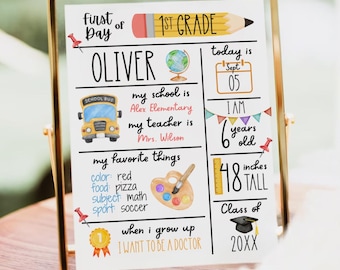 First
Day of 1ST GRADE
OLIVER
SCHOOL BUS
my school is
Alex Elementary
my teacher is
Mrs. Wilson
my favorite things
color: red
food: pizza
subject: math
sport: soccer
1
when i grow up
I WANT TO BE A DOCTOR
today is
Sept.
05
I AM
6 years
old
48 inches
TALL
Class of
20XX